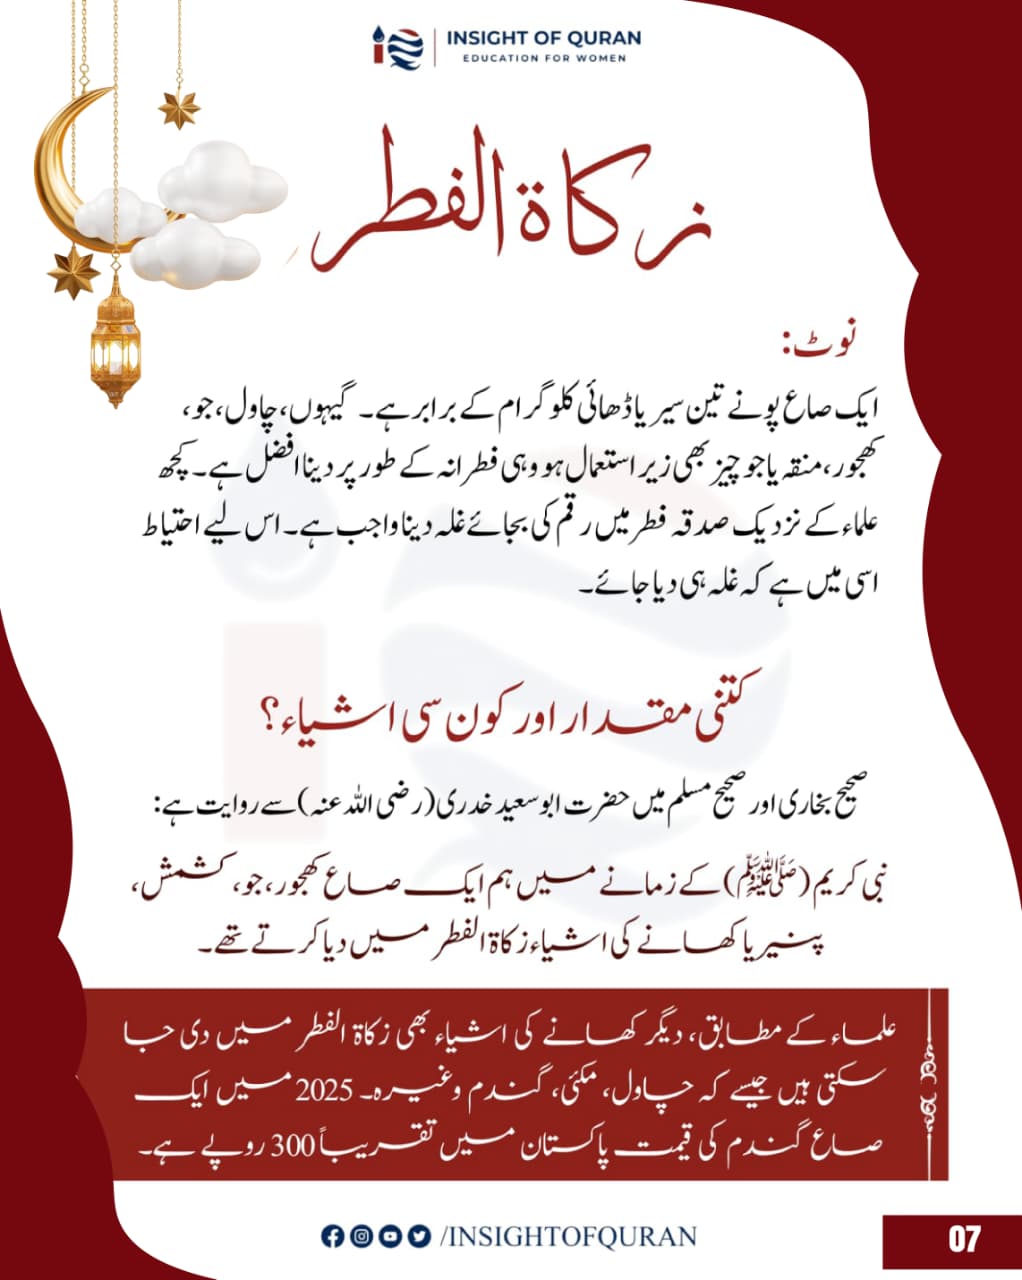 INSIGHT OF QURAN
EDUCATION FOR WOMEN
زکاۃ الفطر
نوٹ:
ایک صاع پونے تین سیر یا ڈھائی کلو گرام کے برابر ہے۔ گیہوں، چاول، جو،
کھجور، منقہ یا جو چیز بھی زیر استعمال ہو وہی فطرانہ کے طور پر دینا افضل ہے۔ کچھ
علماء کے نزدیک صدقہ فطر میں رقم کی بجائے غلہ دینا واجب ہے۔ اس لیے احتیاط
اسی میں ہے کہ غلہ ہی دیا جائے۔
کتنی مقدار اور کون سی اشیاء؟
صحیح بخاری اور صحیح مسلم میں حضرت ابو سعید خدری (رضی اللہ عنہ) سے روایت ہے:
نبی کریم (ﷺ) کے زمانے میں ہم ایک صاع کھجور، جو، کشمش،
پنیر یا کھانے کی اشیاء زکاۃ الفطر میں دیا کرتے تھے۔
علماء کے مطابق، دیگر کھانے کی اشیاء بھی زکاۃ الفطر میں دی جا
سکتی ہیں جیسے کہ چاول، مکئی، گندم وغیرہ۔ 2025 میں ایک
صاع گندم کی قیمت پاکستان میں تقریباً 300 روپے ہے۔
/INSIGHTOFQURAN
07